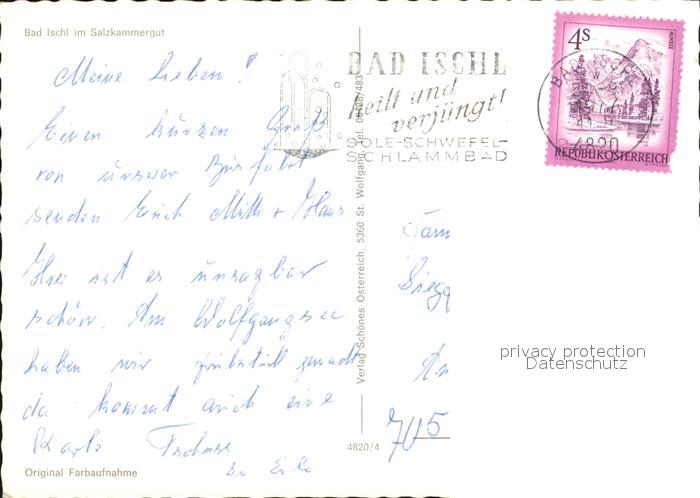 Bad Ischl im Salzkammergut
Meine Lieben!
Einen kurzen Gruß
von unserer Busfahrt
senden Euch Mutti + Hans
Hier ist es unsagbar
schön. Am Wolfgangsee
haben wir Frühstück gemacht
da kommt auch eine
Karte
Original Farbaufnahme
BAD ISCHL
heilt und
verjüngt!
SOLE-SCHWEFEL-
SCHLAMMBAD
Verlag Schönes Österreich, 5360 St. Wolfgang, Tel. 06138/483
4820/4
4S
ALMSEE
REPUBLIK ÖSTERREICH
BAD ISCHL
4820
Fam
Siegf
An
705
privacy protection
Datenschutz